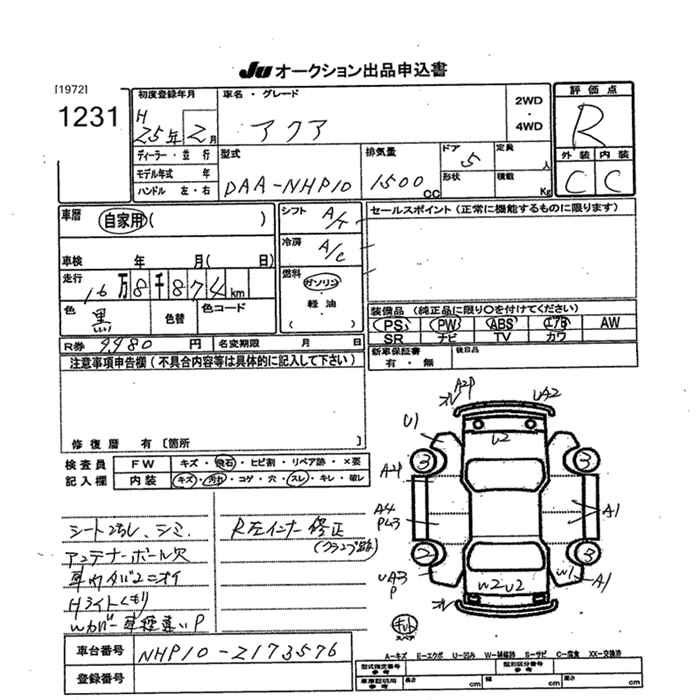 JU オークション出品申込書
[1972]
1231
初度登録年月
H 25年 2月
車名・グレード
アクア
2WD
・
4WD
評価点
R
外装 内装
C C
ディーラー・並行
モデル年式 年
ハンドル 左・右
型式
DAA-NHP10
排気量
1500 CC
ドア 5
定員 人
形状
積載 Kg
車暦 自家用( )
シフト A/T
セールスポイント (正常に機能するものに限ります)
冷房 A/C
車検 年 月( 日)
走行 16万8千874km
燃料
ガソリン
軽油
( )
色 黒
色替
色コード
装備品 (純正品に限り○を付けてください)
PS PW ABS エアB AW
SR ナビ TV カワ
R券 9980 円
名変期限 月 日
新車保証書 有・無
後日品
注意事項申告欄 (不具合内容等は具体的に記入して下さい)
修復暦 有〔箇所 〕
検査員
記入欄
FW キズ・飛石・ヒビ割・リペア跡・×要
内装 キズ・汚れ・コゲ・穴・スレ・キレ・破レ
シート汚れ、シミ
アンテナーボール欠
車内タバコニオイ
Hライトくもり
Wカバー車種違い P
R左インナー修正
(クランプ跡)
A24
UA2
U1
U2
3
3
A24
A4
P43
A1
2
3
UA3
P
W2 U2
W1
A1
キット
スペア
A-キズ E-エクボ U-凹み W-補修跡 S-サビ C-腐食 XX-交換済
車台番号 NHP10-2173576
登録番号
型式指定番号
参考
類別区分番号
参考
車両寸法
参考
長さ cm
幅 cm
高さ cm